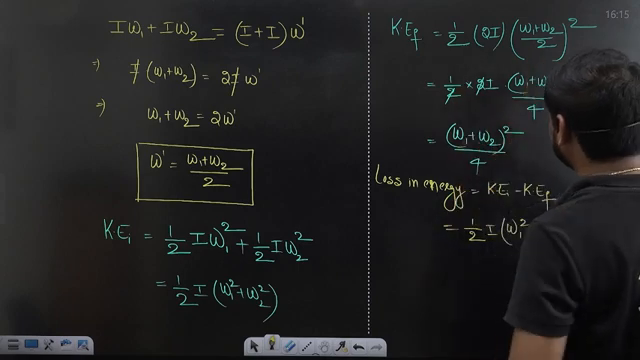 Iω₁ + Iω₂ = (I + I) ω'
⇒ I (ω₁+ω₂) = 2I ω'
⇒ ω₁ + ω₂ = 2ω'
ω' = (ω₁+ω₂)/2
K.Eᵢ = 1/2 Iω₁² + 1/2 Iω₂²
= 1/2 I (ω₁² + ω₂²)
16:15
K.E_f = 1/2 (2I) ((ω₁+ω₂)/2)²
= 1/2 × 2I (ω₁+ω /4
= (ω₁+ω₂)²/4
Loss in energy = K.Eᵢ - K.E_f
= 1/2 I (ω₁²